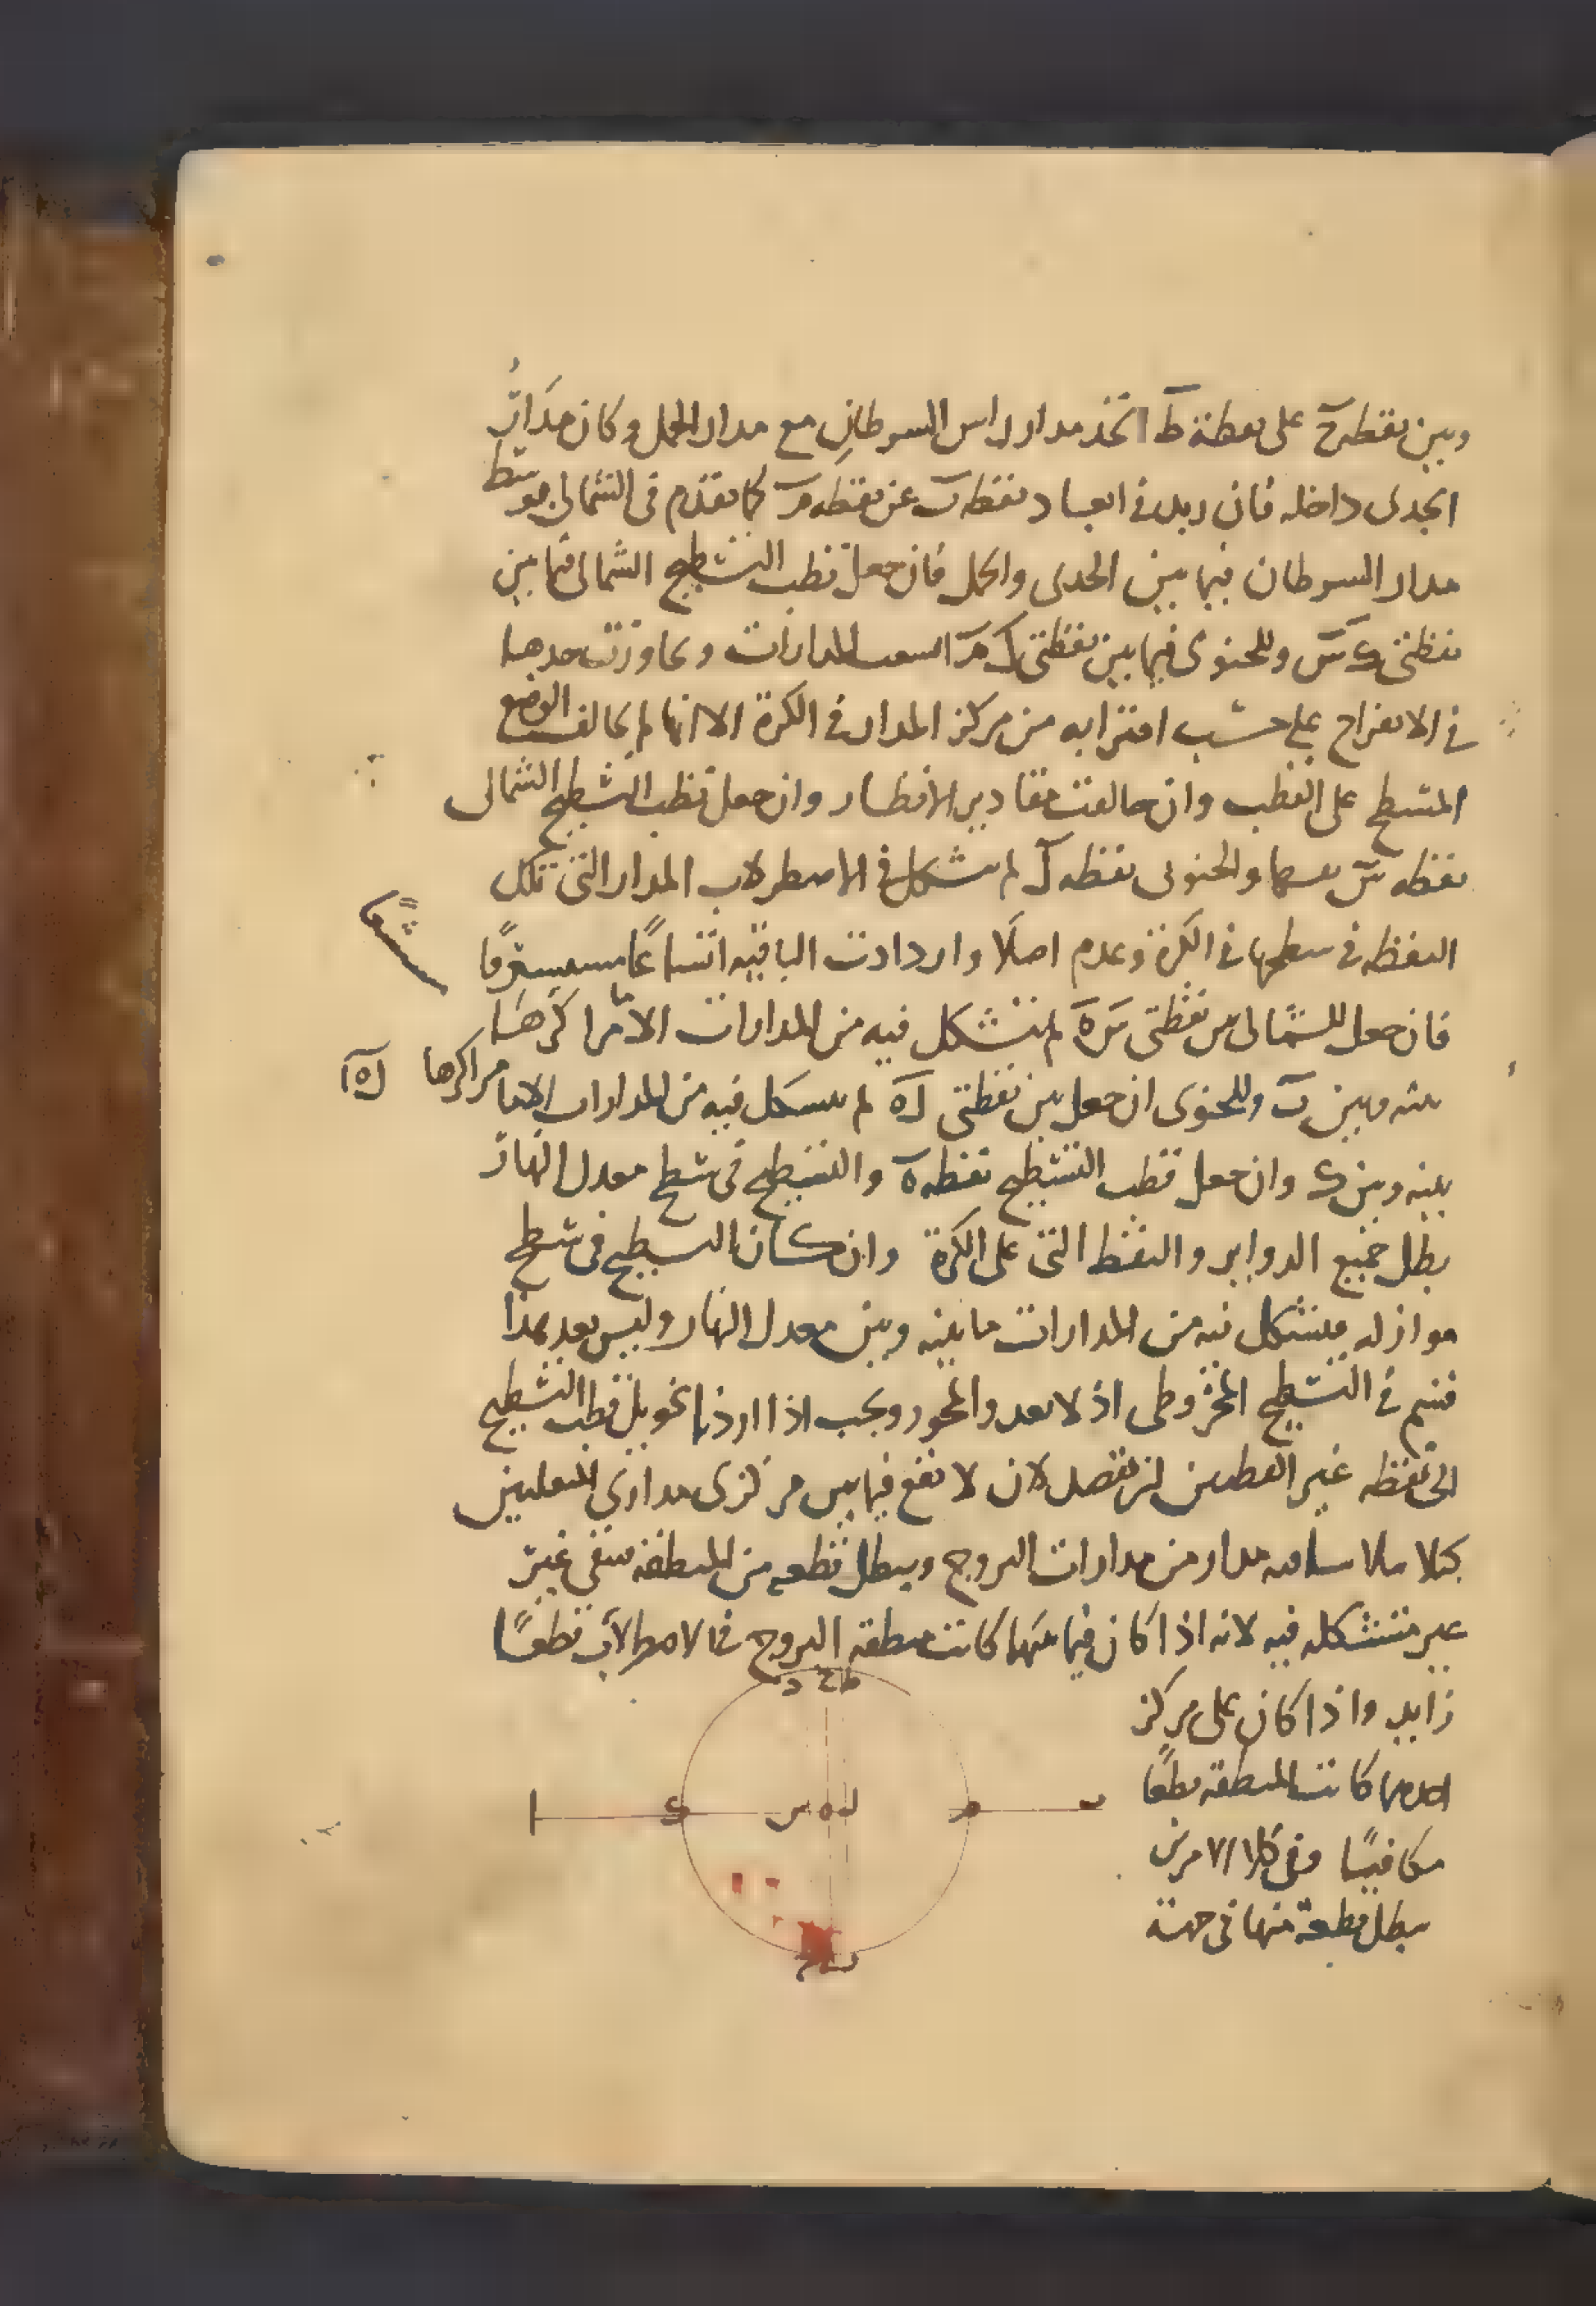 وبين نقطة ح على نقطة ط اتخذ مدار راس السرطان مع مدار الحمل وكان مدار
الجدى داخله فان زيد فى ابعاد نقطه ب عن نقطه م كما تقدم فى الشمالى توسط
مدار السرطان فيما بين الجدى والحمل فان جعل قطب التسطيح الشمالى فيما بين
نقطتى ى س وللجنوى فيما بين نقطتى ل م اتسعت المدارات وتجاوزت حدها
فى الانفراج على حسب اقترابه من مركز المدار فى الكرة الا انها لم تخالف الوضع
المتسطح على القطب وان خالفت مقادير الاقطار وان جعل قطب التسطيح الشمالى
نقطه س نفسها والجنوبى نقطه ل لم يتشكل فى الاسطرلاب المدار التى تلك
النقطه فى سطحها فى الكرة وعدم اصلا وازدادت الباقيه اتساعًا
فان جعل للشمالى بين نقطتى س ه لم يتشكل فيه من المدارات الا ما مراكزها
بينه وبين ب وللجنوى ان جعل بين نقطتى ل ه لم يتشكل فيه من المدارات الا ما مراكزها
ل ه ا
بينه وبين ى وان جعل قطب التسطيح نقطه ه والتسطيح فى سطح معدل النهار
بطل جميع الدواير والنقط التى على الكرة وان كان التسطيح فى سطح
مواز له يتشكل فيه من المدارات ما بينه وبين معدل النهار وليس بعد هذا
قسم فى التسطيح المخروطى اذ لا بعد والمحور ويجب اذا اردنا تحويل قطب التسطيح
الى نقطه غير القطبين ان نقصد لان لا تقع فيما بين مركزى مدارى المنقلبين
كيلا مدار من مدارات البروج ويبطل قطعه من المنطقة فتبقى غير
غير متشكله فيه لانه اذا كان فيما بينهما كانت منطقة البروج فى الاصطرلاب قطعًا
زايد واذا كان على مركز
احدهما كانت المنطقة قطعًا
مكافيًا وفى كلا الامرين
يبطل قطعة منها فى جهة
ط ح د
ا ى س ه ل م ب